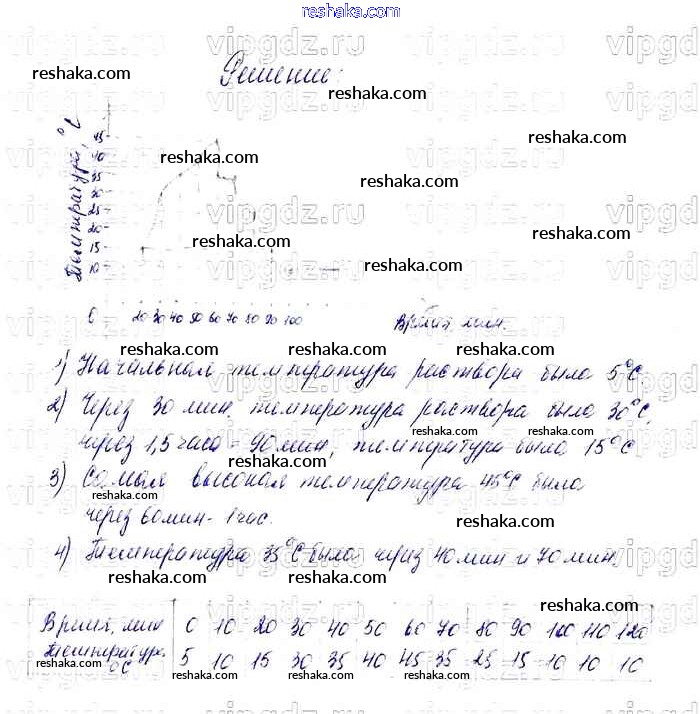 reshaka.com
Решение:
Температура, °C
45
40
35
30
25
20
15
10
0
20 30 40 50 60 70 80 90 100
Время, мин.
1) Начальная температура раствора была 5°C.
2) Через 30 мин. температура раствора была 30°C,
через 1,5 часа - 90 мин, температура была 15°C
3) Самая высокая температура 45°C была
через 60 мин - 1 час.
4) Температура 35°C была через 40 мин и 70 мин.
Время, мин 0 10 20 30 40 50 60 70 80 90 100 110 120
Температура, °C 5 10 15 30 35 40 45 35 25 15 10 10 10